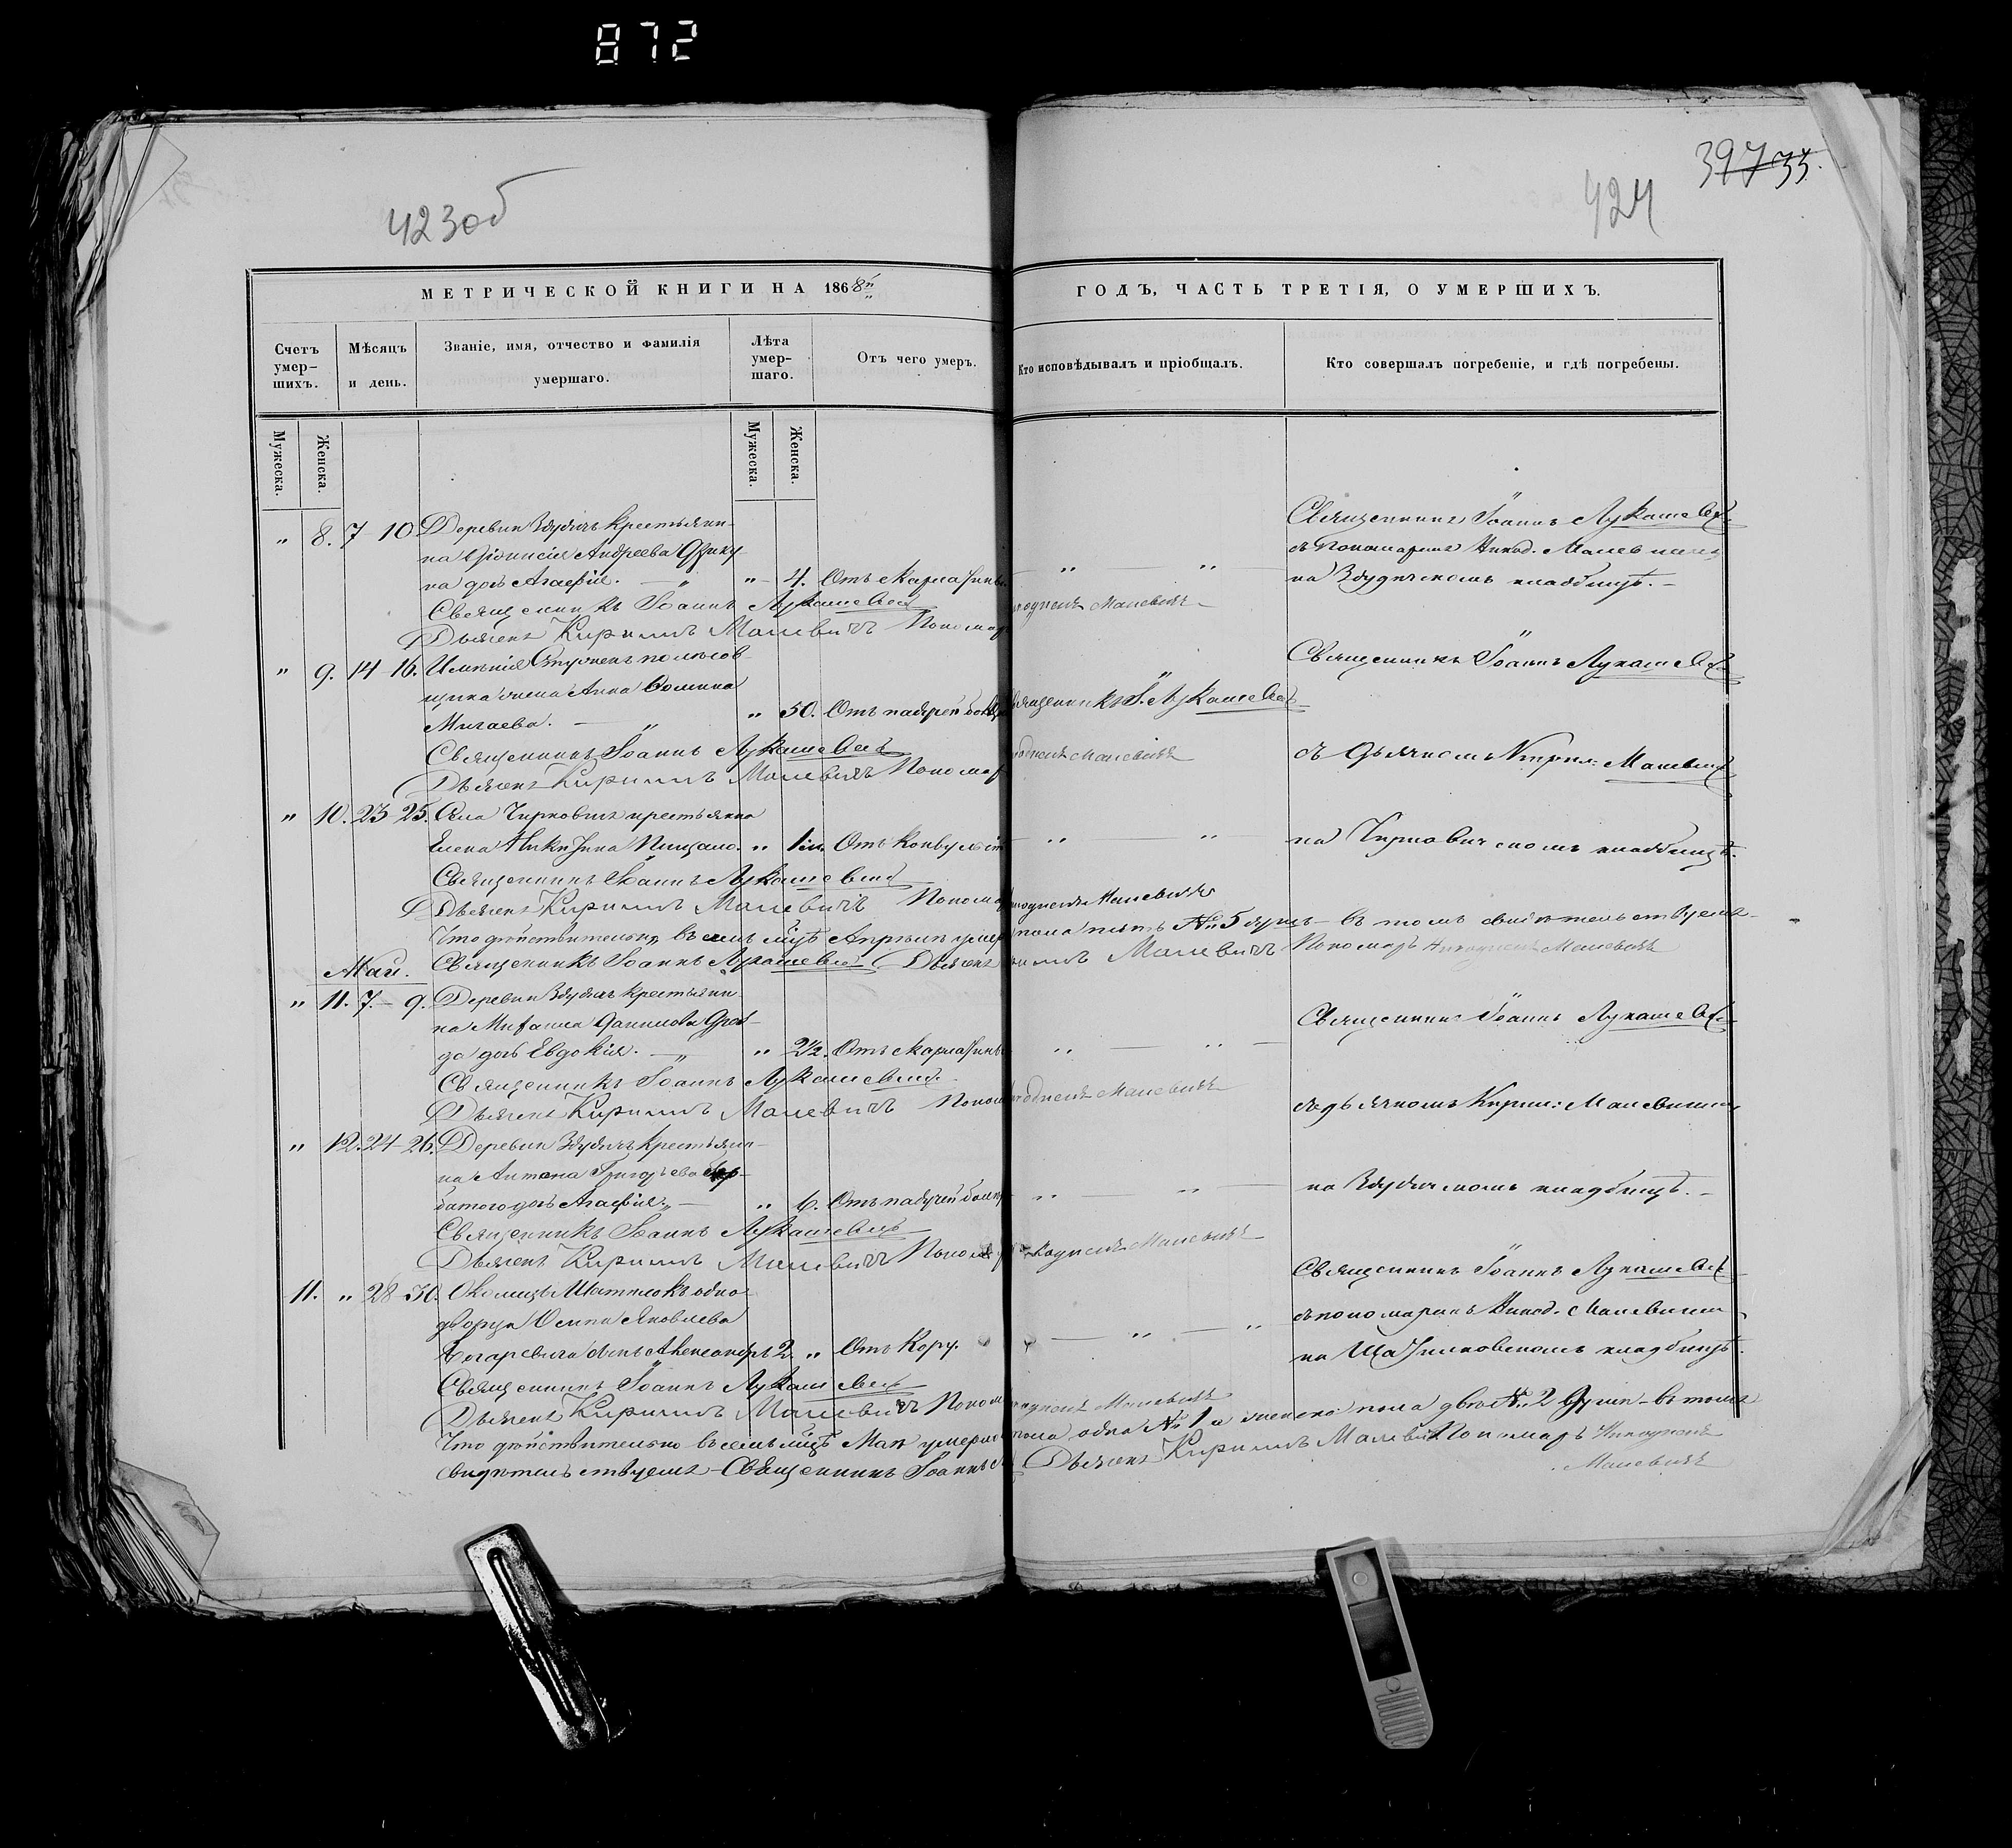 872
423об
424
397 33.
МЕТРИЧЕСКОЙ КНИГИ НА 1868й
ГОДЪ, ЧАСТЬ ТРЕТІЯ, О УМЕРШИХЪ.
Счетъ умер-шихъ.
Мѣсяцъ и день.
Званіе, имя, отчество и фамилія умершаго.
Лѣта умер-шаго.
Отъ чего умеръ.
Кто исповѣдывалъ и пріобщалъ.
Кто совершалъ погребеніе, и гдѣ погребены.
Мужеска.
Женска.
Мужеска.
Женска.
Священникъ Іоаннъ Лукашевичъ
„ 8. 7-10 Деревни Здудичъ крестьяни-
съ пономаремъ Никод. Малевичемъ
на Діонисія Андреева
на дочь Агафія. — „ „ 4. Отъ скарлатины
на Здудичскомъ кладбищѣ. —
Священникъ Іоаннъ Лукашевичъ
Дьячекъ Кириллъ Малевичъ Пономарь Никодимъ Малевичъ
„ 9. 14-16. Имѣнія полѣсов-
Священникъ Іоаннъ Лукашевичъ
щика жена Анна Ѳомина
Мигаева. — „ „ 50. Отъ падучей бол. Священникъ І. Лукашевичъ
Священникъ Іоаннъ Лукашевичъ
съ Дьячкомъ Кирил: Малевичемъ
Дьячекъ Кириллъ Малевичъ Пономарь Никодимъ Малевичъ
„ 10. 23-25. Села Чирковичъ крестьянка
Елена Никитина „ 1 м. Отъ конвульсій
на Чирковичскомъ кладбищѣ.
Священникъ Іоаннъ Лукашевичъ
Дьячекъ Кириллъ Малевичъ Пономарь Никодимъ Малевичъ
Что дѣйствительно въ семъ мцѣ Апрѣлѣ умерло пола пять № 5 душъ — въ томъ свидѣтельствуемъ —
Священникъ Іоаннъ Лукашевичъ Дьячекъ Кириллъ Малевичъ Пономарь Никодимъ Малевичъ
Май.
„ 11. 7. — 9. Деревни Здудичъ крестьяни-
на Михаила Данилова
Священникъ Іоаннъ Лукашевичъ
да дочь Евдокія. — „ „ 2½. Отъ скарлатины
Священникъ Іоаннъ Лукашевичъ.
Дьячекъ Кириллъ Малевичъ Пономарь Никодимъ Малевичъ
съ дьячкомъ Кирил: Малевичемъ
„ 12. 24-26. Деревни Здудичъ крестьяни-
на Антона Григорьева Гор-
батого дочь Агафія „ — „ 6. Отъ падучей болѣз.
на Здудичскомъ кладбищѣ. —
Священникъ Іоаннъ Лукашевичъ
Дьячекъ Кириллъ Малевичъ Пономарь Никодимъ Малевичъ
Священникъ Іоаннъ Лукашевичъ
11. „ 28-30. Околицы Шатилокъ одно-
дворца Осипа Яковлева
съ пономаремъ Никод. Малевичемъ
сынъ Александръ 2. „ Отъ Кору.
на Шатилковскомъ кладбищѣ.
Священникъ Іоаннъ Лукашевичъ
Дьячекъ Кириллъ Малевичъ Пономарь Никодимъ Малевичъ
Что дѣйствительно въ семъ мцѣ Маѣ умерло пола одна № 1 а женска пола двѣ № 2 души — въ томъ
свидѣтельствуемъ — Священникъ Іоаннъ Дьячекъ Кириллъ Малевичъ Пономарь Никодимъ
Малевичъ